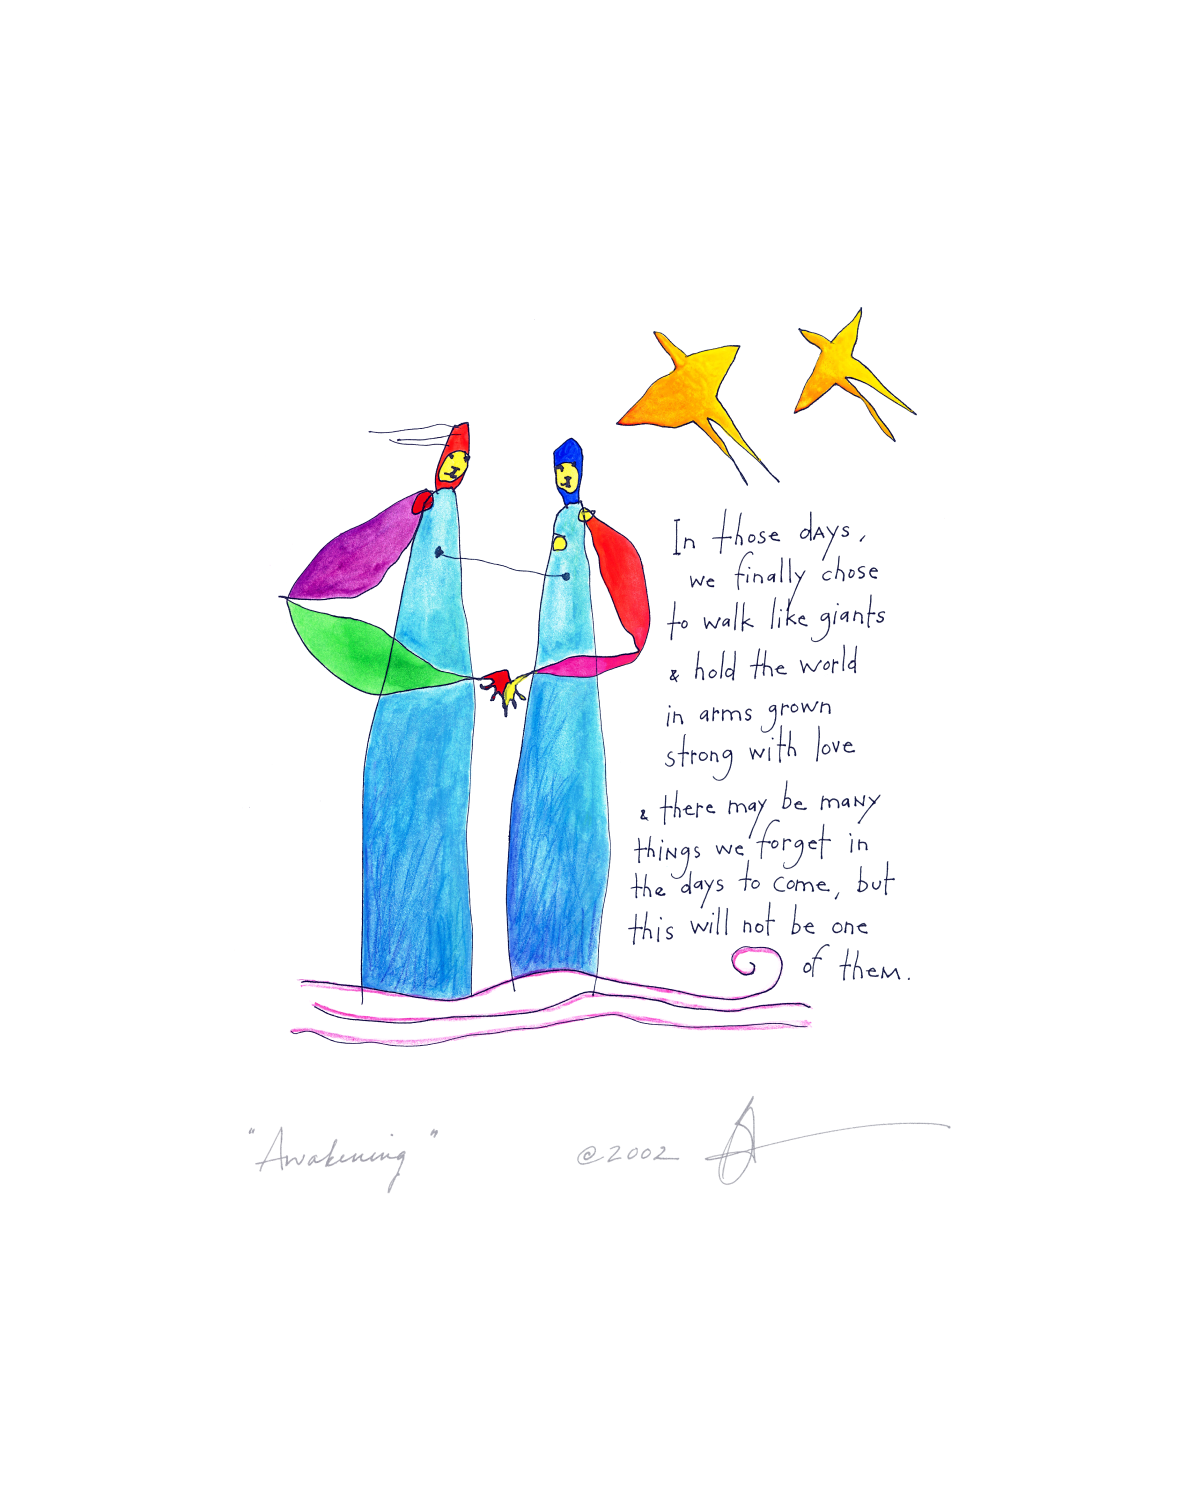 In those days,
we finally chose
to walk like giants
& hold the world
in arms grown
strong with love
& there may be many
things we forget in
the days to come, but
this will not be one
of them.
"Awakening" ©2002